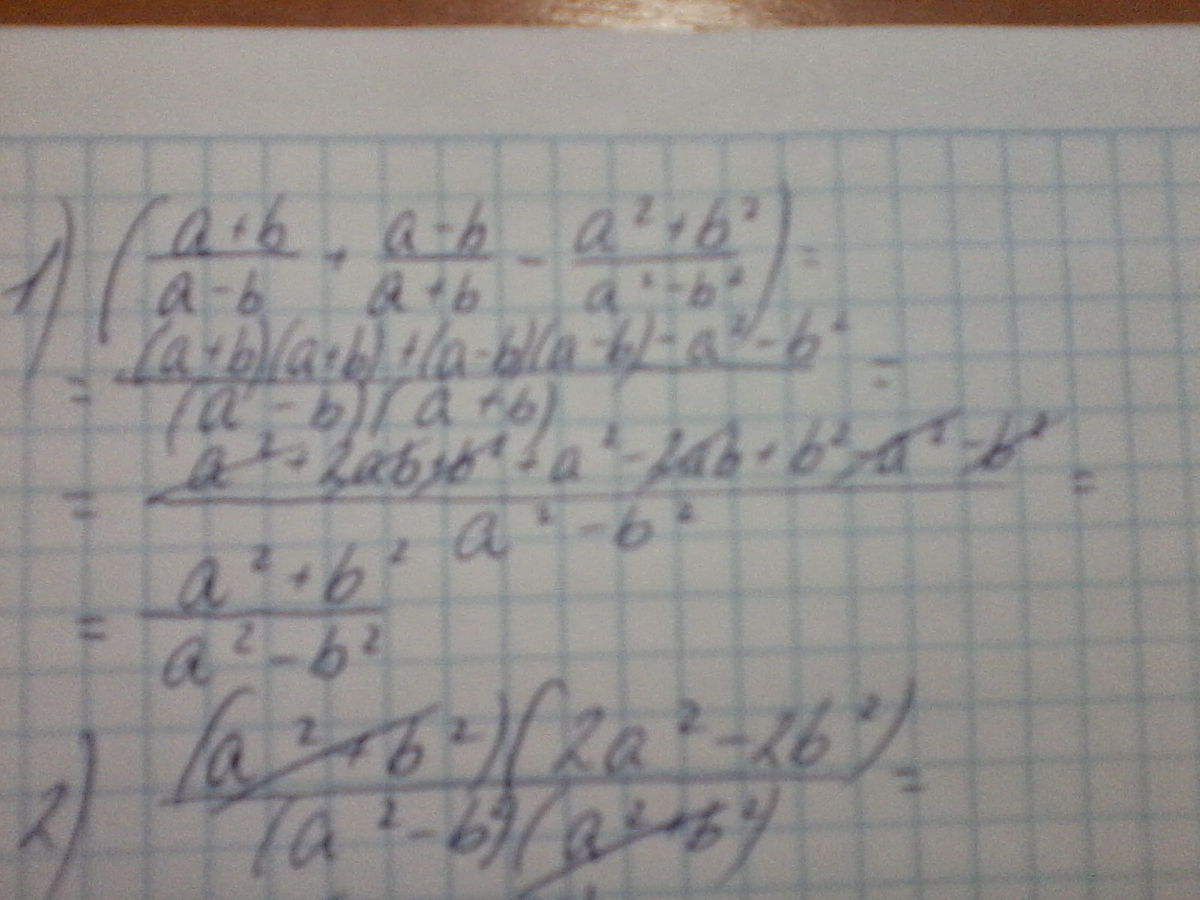 1) ( (a+b)/(a-b) + (a-b)/(a+b) - (a²+b²)/(a²-b²) ) =
= ((a+b)(a+b)+(a-b)(a-b)-a²-b²)/((a-b)(a+b)) =
= (a²+2ab+b²+a²-2ab+b²-a²-b²)/(a²-b²) =
= (a²+b²)/(a²-b²)
2) ((a²+b²)(2a²-2b²))/((a²-b²)(a²+b²)) =